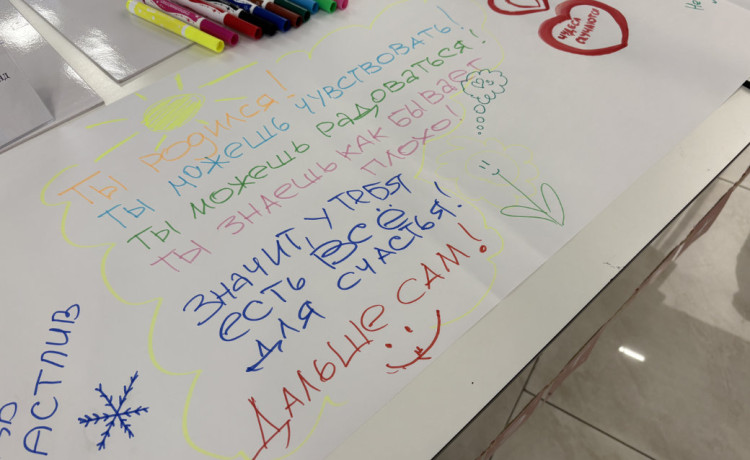 ТЫ РОДИЛСЯ!
ТЫ МОЖЕШЬ ЧУВСТВОВАТЬ!
ТЫ МОЖЕШЬ РАДОВАТЬСЯ!
ТЫ ЗНАЕШЬ КАК БЫВАЕТ
ПЛОХО!
ЗНАЧИТ, У ТЕБЯ
ЕСТЬ ВСЁ
ДЛЯ СЧАСТЬЯ!
ДАЛЬШЕ САМ!
ЧУДЕСА
СЛУЧАЮТСЯ
АСТЛИВ